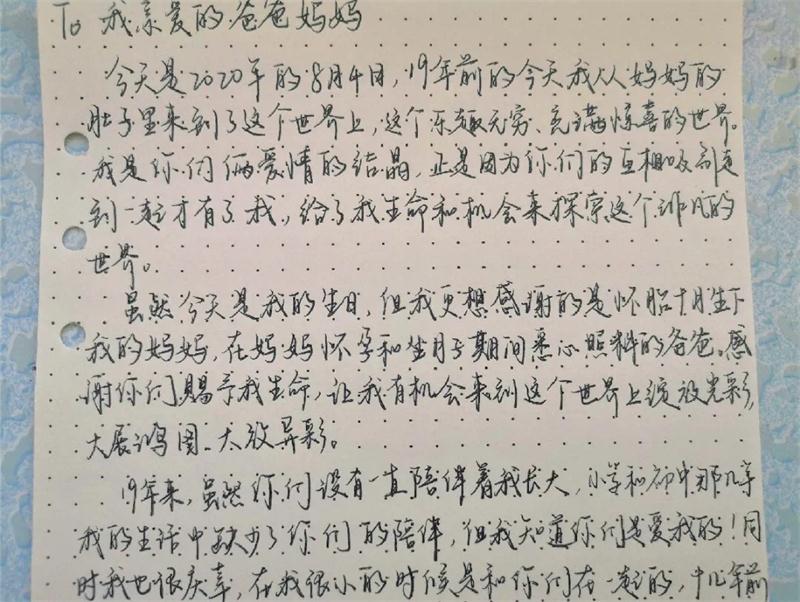 To 我亲爱的爸爸妈妈
今天是2020年的8月4日，19年前的今天我从妈妈的
肚子里来到了这个世界上，这个乐趣无穷、充满惊喜的世界。
我是你们俩爱情的结晶，正是因为你们的互相吸引走
到一起才有了我，给了我生命和机会来探索这个非凡的
世界。
虽然今天是我的生日，但我更想感谢的是怀胎十月生下
我的妈妈，在妈妈怀孕和坐月子期间悉心照料的爸爸。感
谢你们赐予我生命，让我有机会来到这个世界上绽放光彩，
大展鸿图、大放异彩。
19年来，虽然你们没有一直陪伴着我长大，小学和初中那几年
我的生活中缺少了你们的陪伴，但我知道你们是爱我的！同
时我也很庆幸，在我很小的时候是和你们在一起的，十几年前